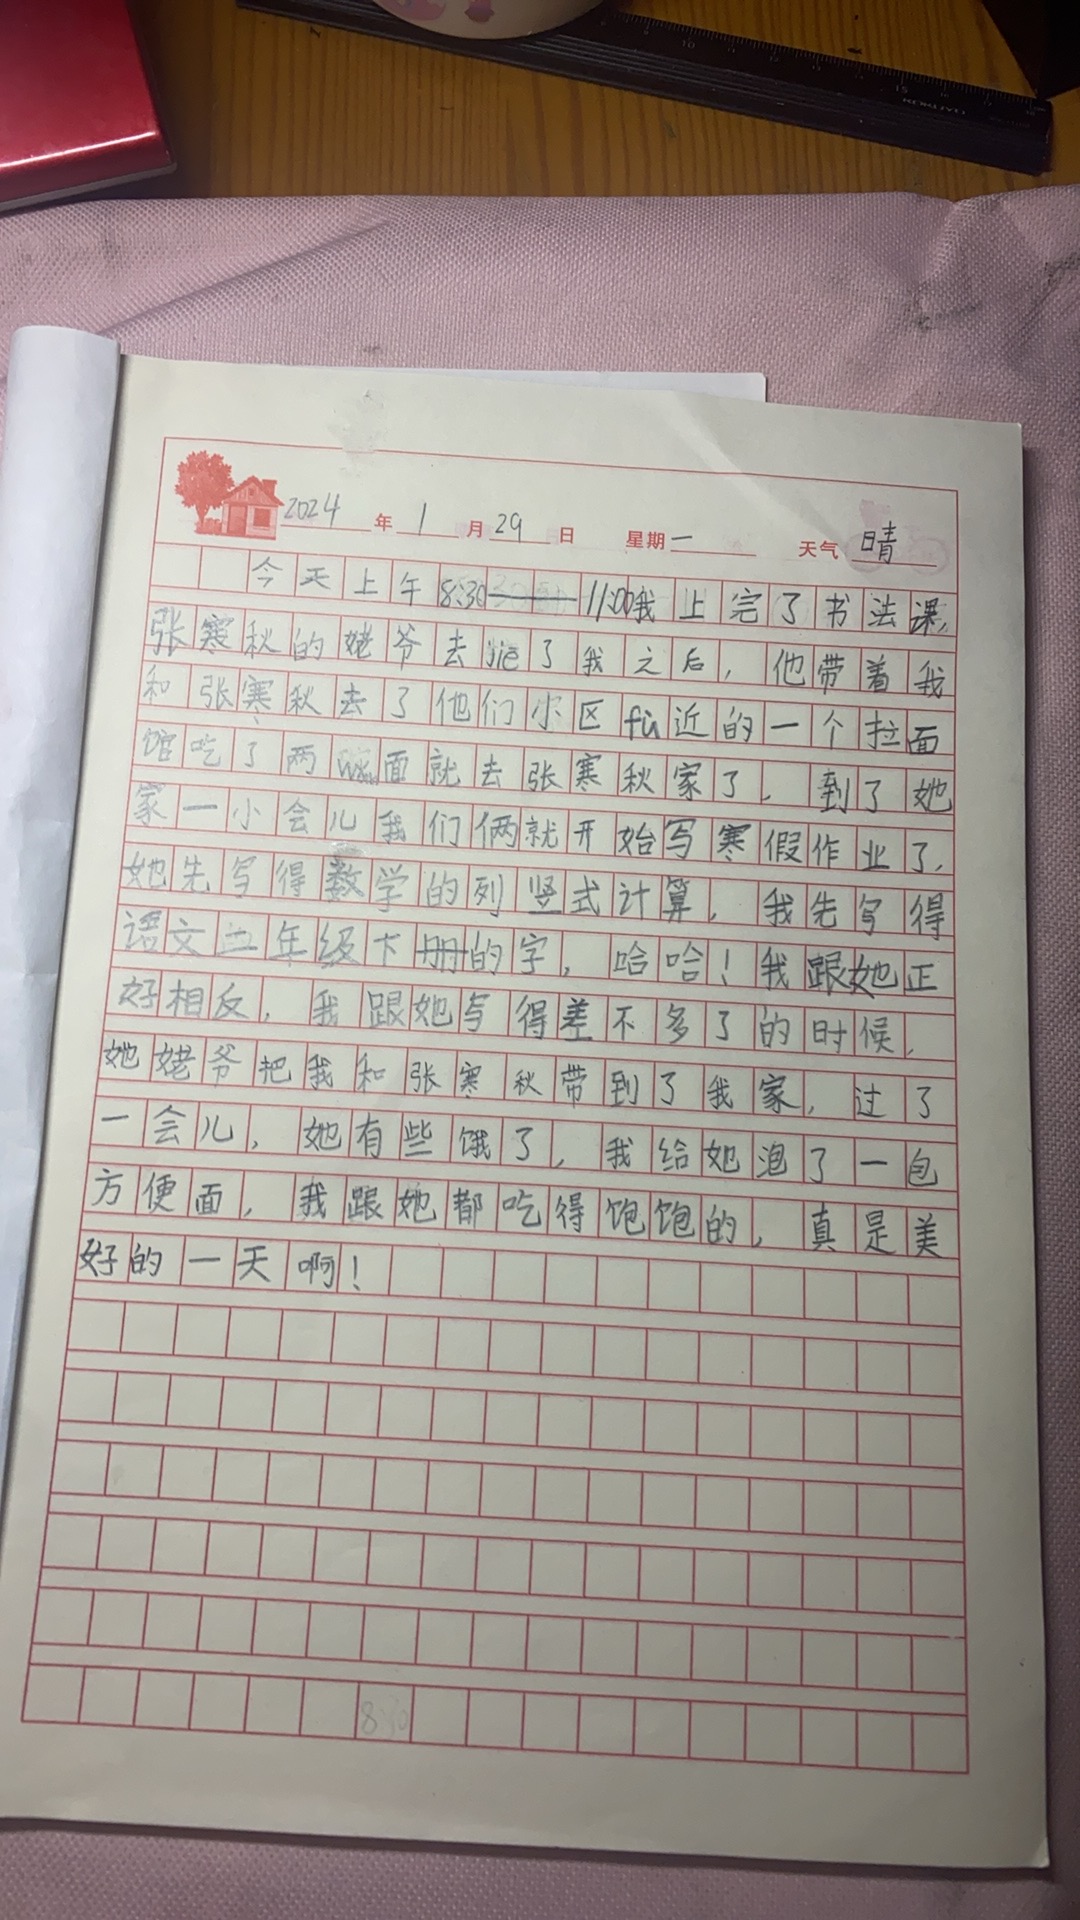 2024年1月29日 星期一 天气 晴
今天上午8:30——11:00我上完了书法课,
张寒秋的姥爷去jiē了我之后，他带着我
和张寒秋去了他们小区fù近的一个拉面
馆吃了两 面就去张寒秋家了，到了她
家一小会儿我们俩就开始写寒假作业了，
她先写得数学的列竖式计算，我先写得
语文 年级下册的字，哈哈！我跟她正
好相反，我跟她写得差不多了的时候，
她姥爷把我和张寒秋带到了我家，过了
一会儿，她有些饿了，我给她泡了一包
方便面，我跟她都吃得饱饱的，真是美
好的一天啊！